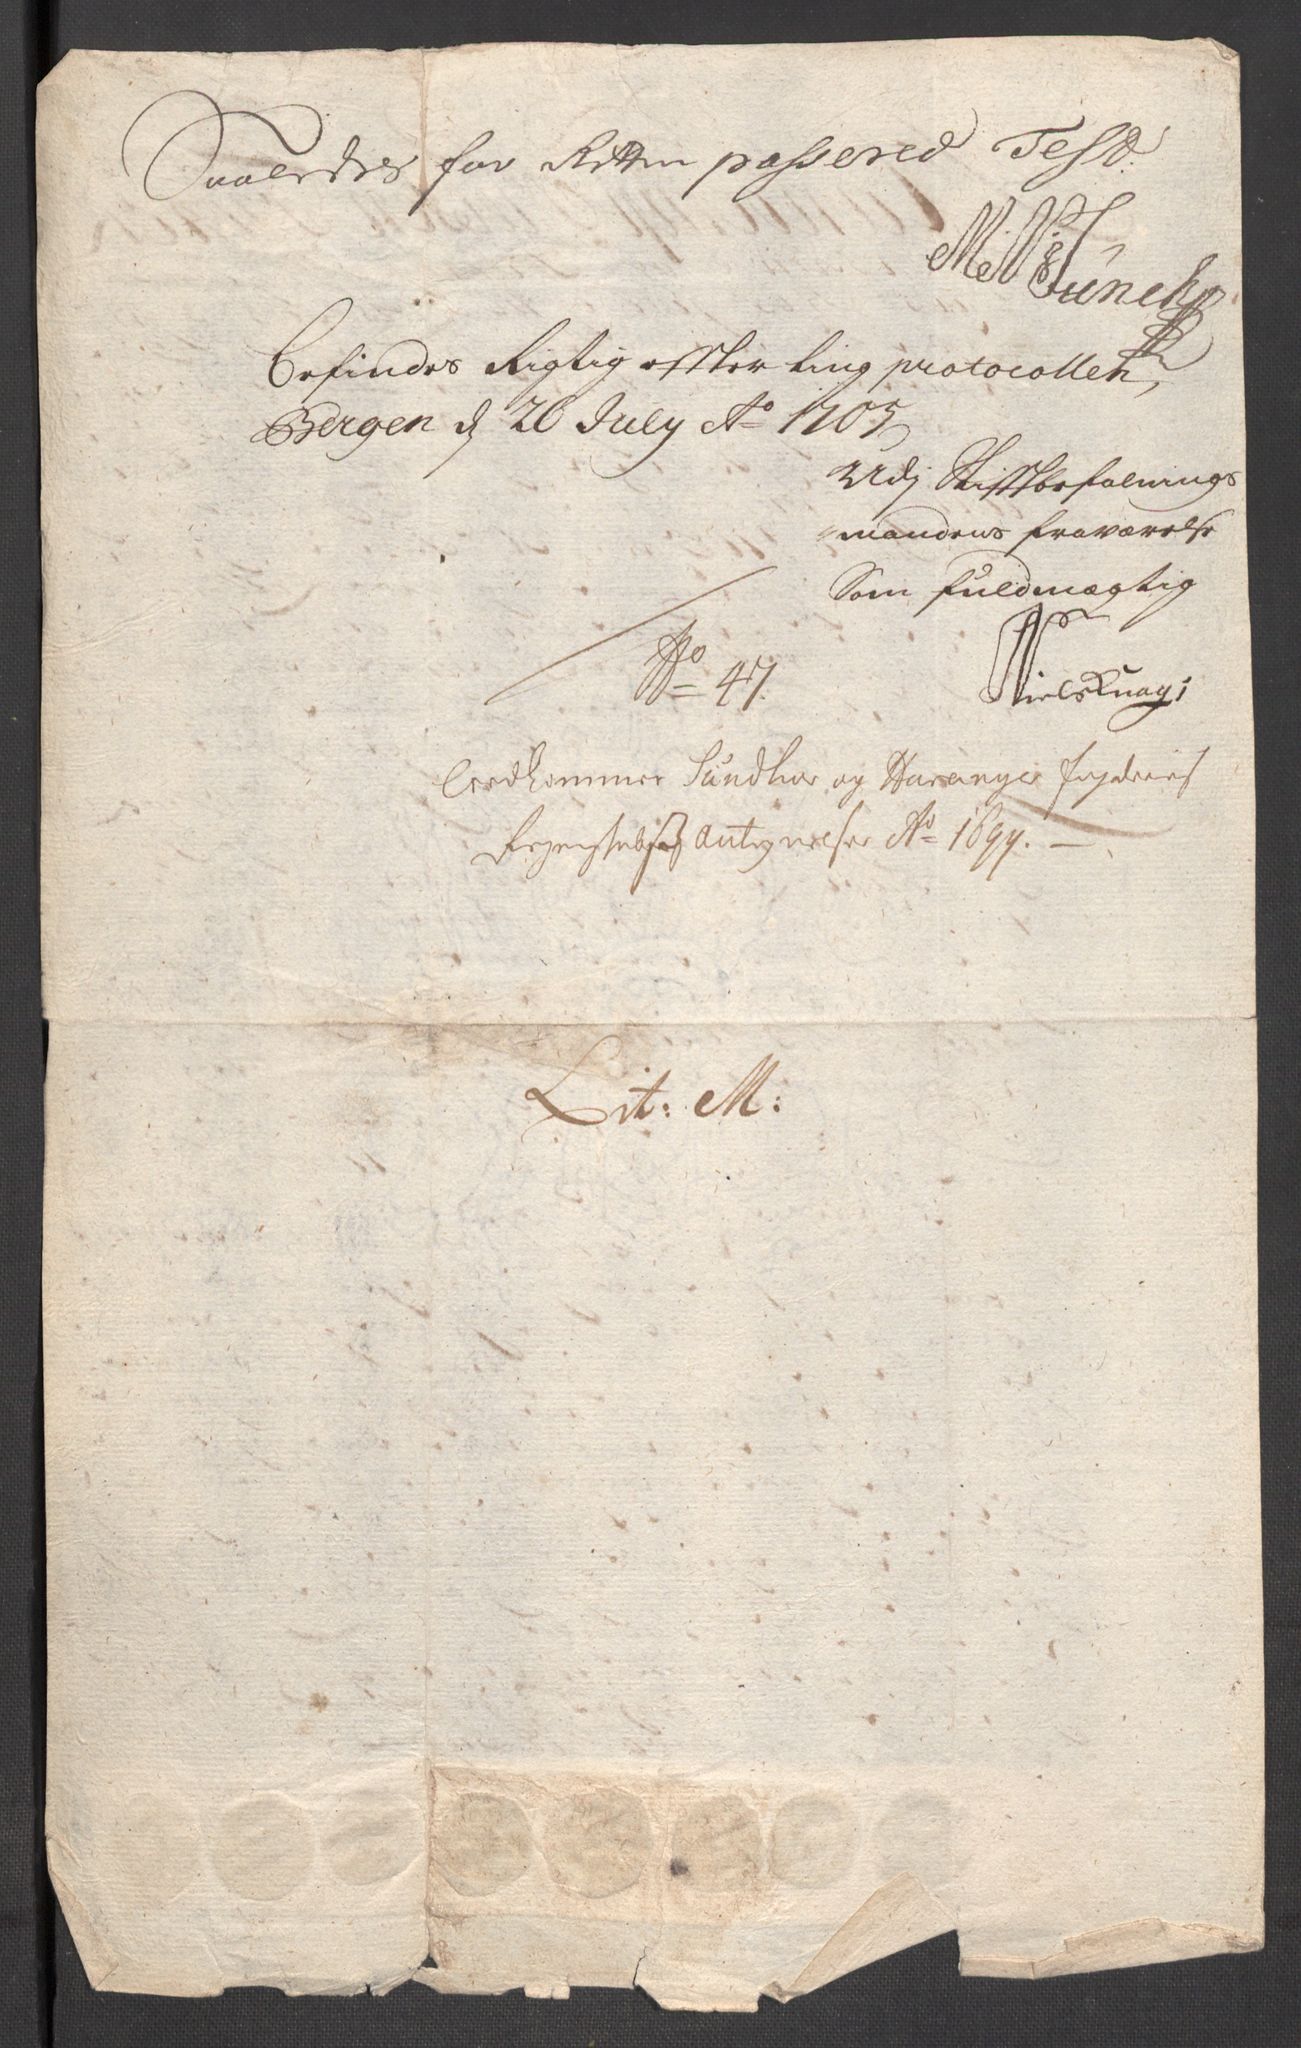 Saaledes for Retten passered Test:
Befindes Rigtig effter ting protocollen,
Bergen d 20 July Ao 1705
Udj Stifftbefalnings
mandens fraværelse
Som fuldmægtig
No 47.
Niels Knag;
Vedkommer Sundhor og Hardanger fogderies
Regenskabs Antegnelser Ao 1699.
Lit: M: